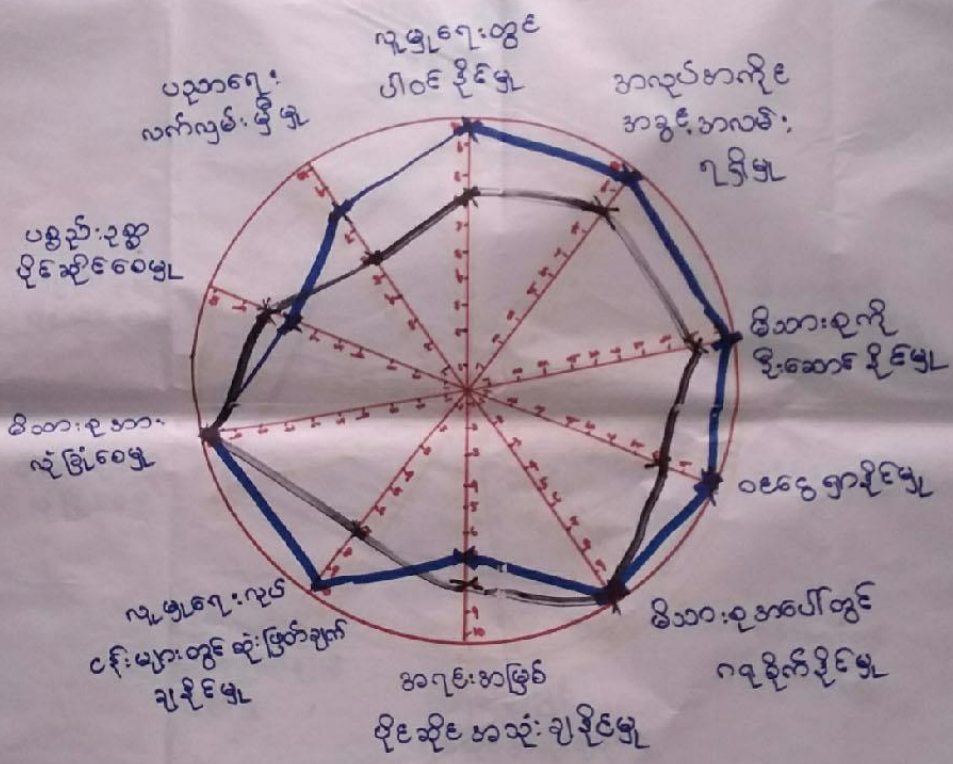 လူမှုရေးတွင်
ပါဝင်နိုင်မှု
အလုပ်အကိုင်
အခွင့်အလမ်း
ရရှိမှု
မိသားစုကို
ဦးဆောင်နိုင်မှု
ဝင်ငွေရှာနိုင်မှု
မိသားစုအပေါ်တွင်
ဂရုစိုက်နိုင်မှု
အရင်းအမြစ်
ပိုင်ဆိုင်အသုံးချနိုင်မှု
လူမှုရေးလုပ်
ငန်းများတွင်ဆုံးဖြတ်ချက်
ချနိုင်မှု
မိသားစုအား
လုံခြုံစေမှု
ပစ္စည်းဥစ္စာ
ပိုင်ဆိုင်စေမှု
ပညာရေး
လက်လှမ်းမှီမှု